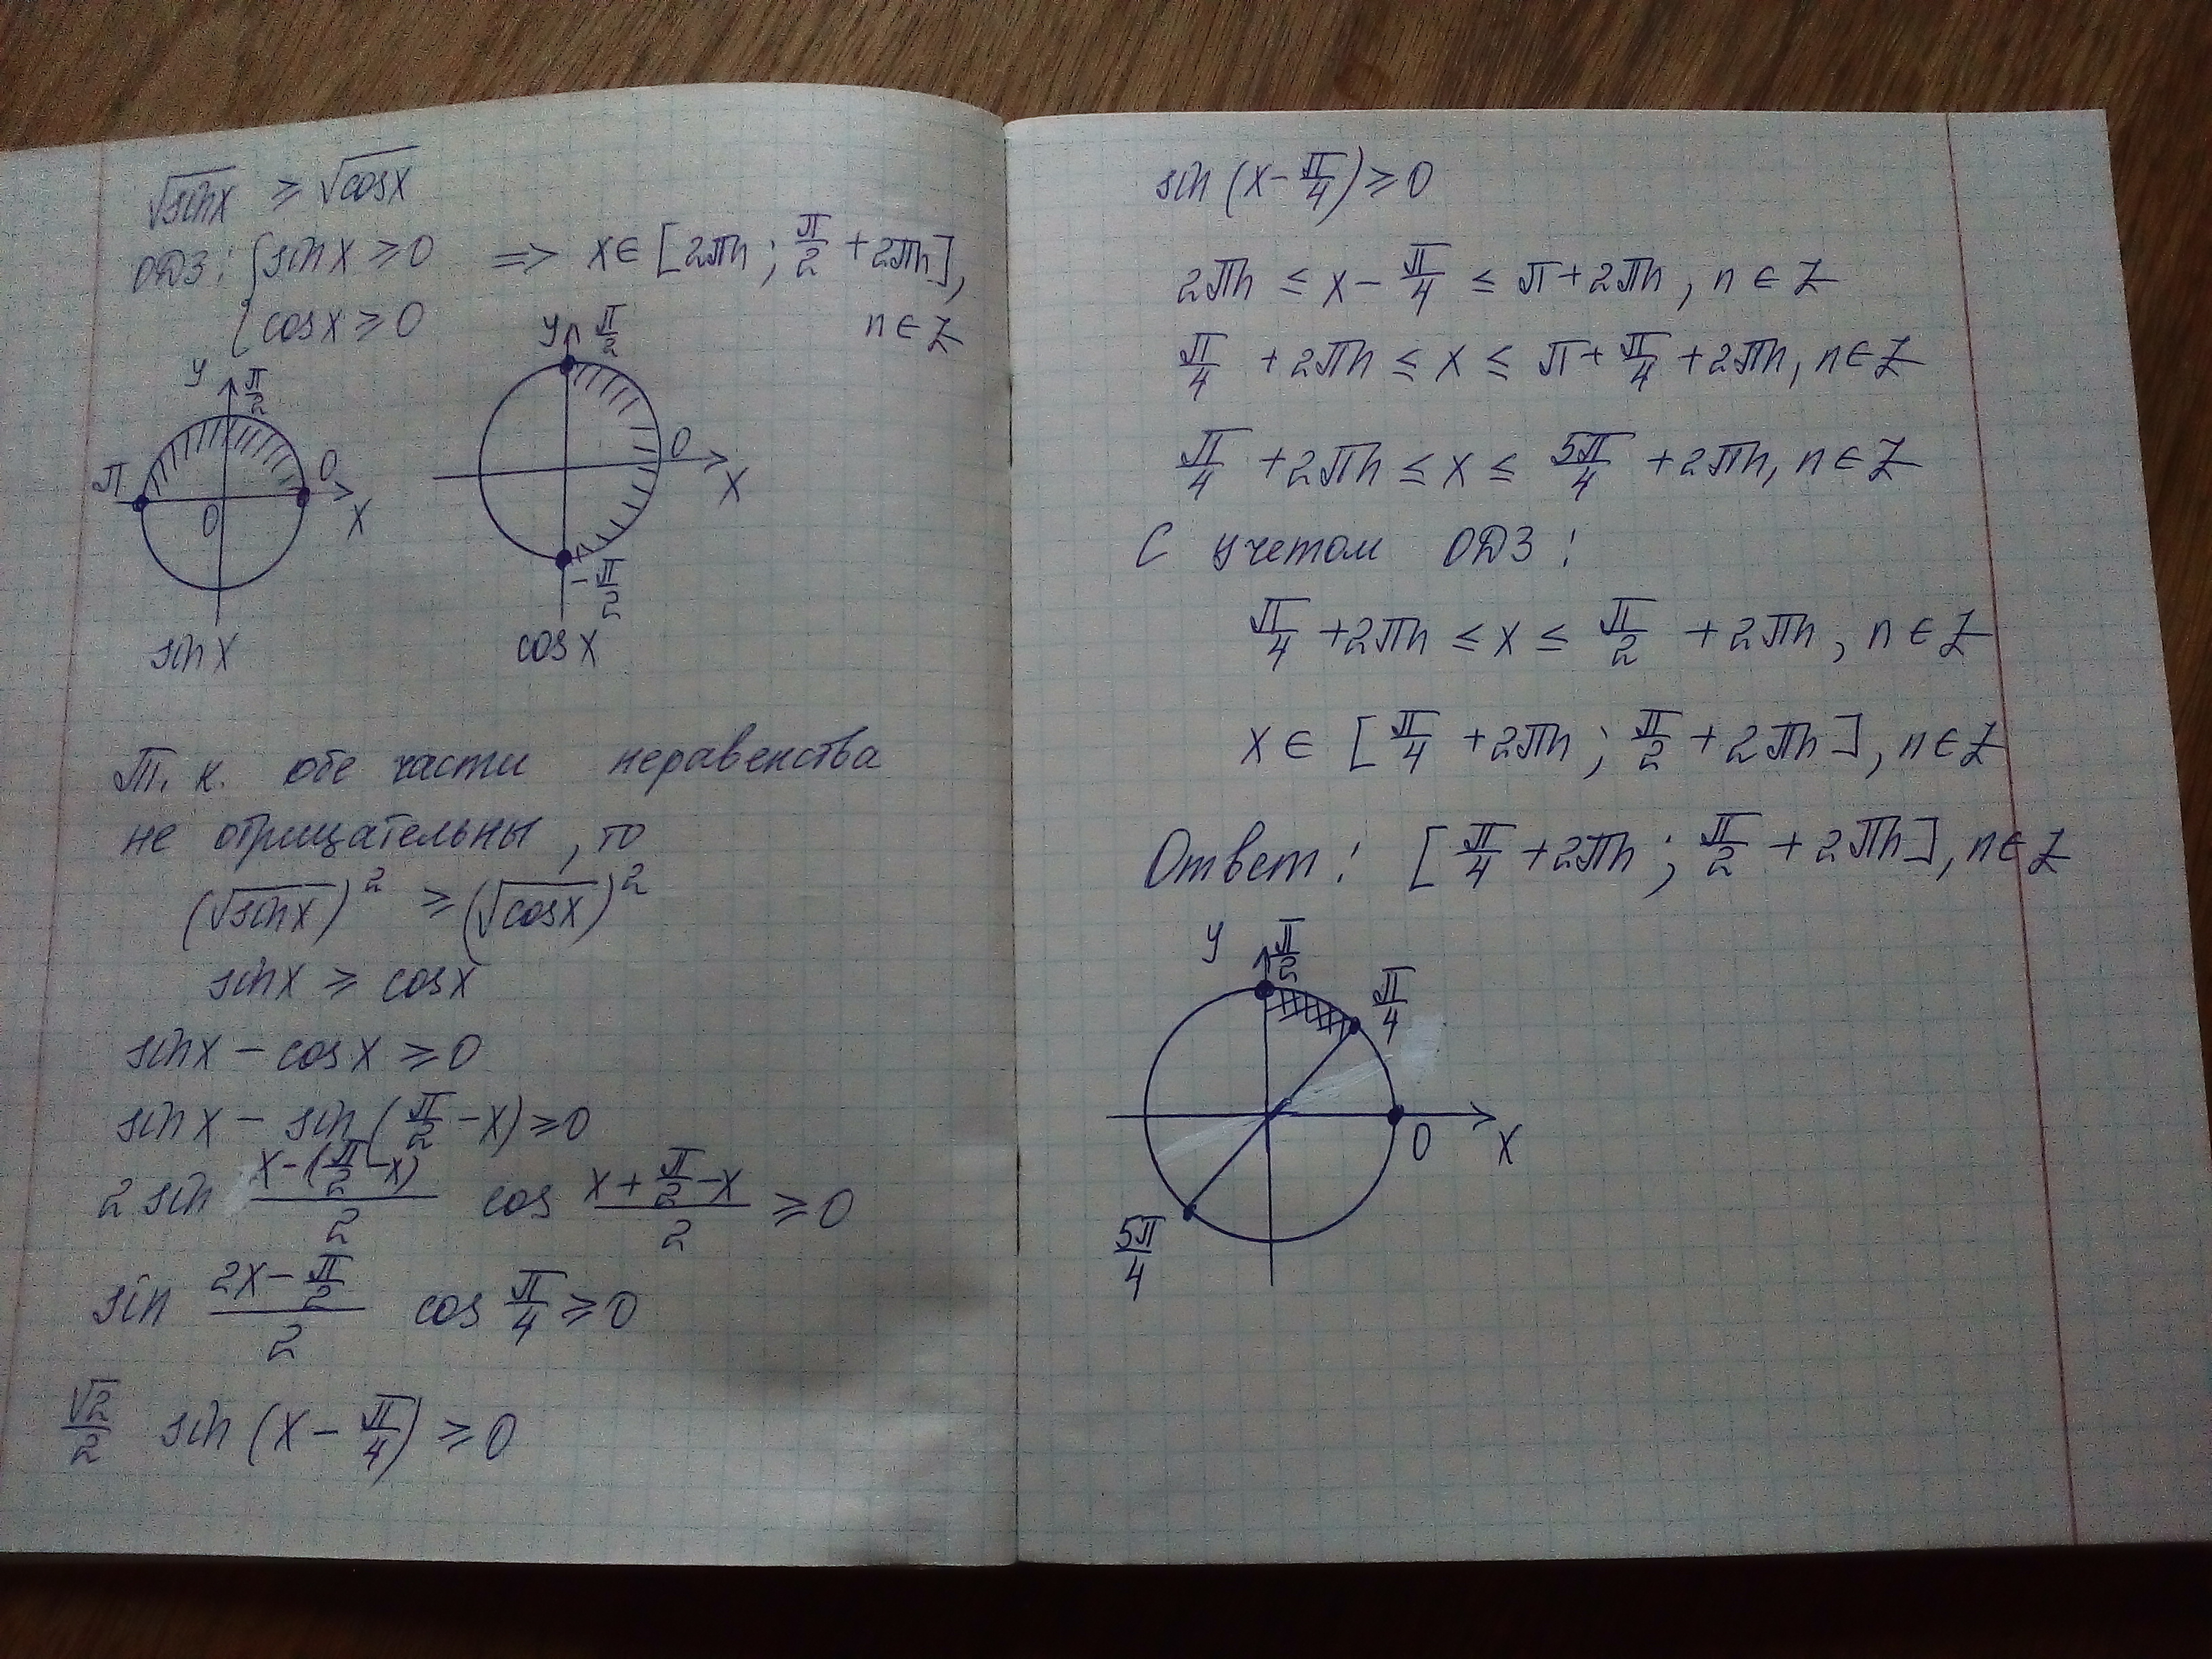 √sinx ≥ √cosx
ОДЗ: { sinx ≥ 0 => x ∈ [2πn; π/2 + 2πn],
{ cosx ≥ 0 n ∈ Z
y π/2
π 0 0 x
sinx
y π/2
0 x
-π/2
cosx
Т.к. обе части неравенства
не отрицательны, то
(√sinx)² ≥ (√cosx)²
sinx ≥ cosx
sinx - cosx ≥ 0
sinx - sin(π/2 - x) ≥ 0
2 sin (x-(π/2-x))/2 cos (x+π/2-x)/2 ≥ 0
sin (2x-π/2)/2 cos π/4 ≥ 0
√2/2 sin(x - π/4) ≥ 0
sin(x - π/4) ≥ 0
2πn ≤ x - π/4 ≤ π + 2πn, n ∈ Z
π/4 + 2πn ≤ x ≤ π + π/4 + 2πn, n ∈ Z
π/4 + 2πn ≤ x ≤ 5π/4 + 2πn, n ∈ Z
С учетом ОДЗ:
π/4 + 2πn ≤ x ≤ π/2 + 2πn, n ∈ Z
x ∈ [π/4 + 2πn; π/2 + 2πn], n ∈ Z
Ответ: [π/4 + 2πn; π/2 + 2πn], n ∈ Z
y π/2
π/4
0 x
5π/4